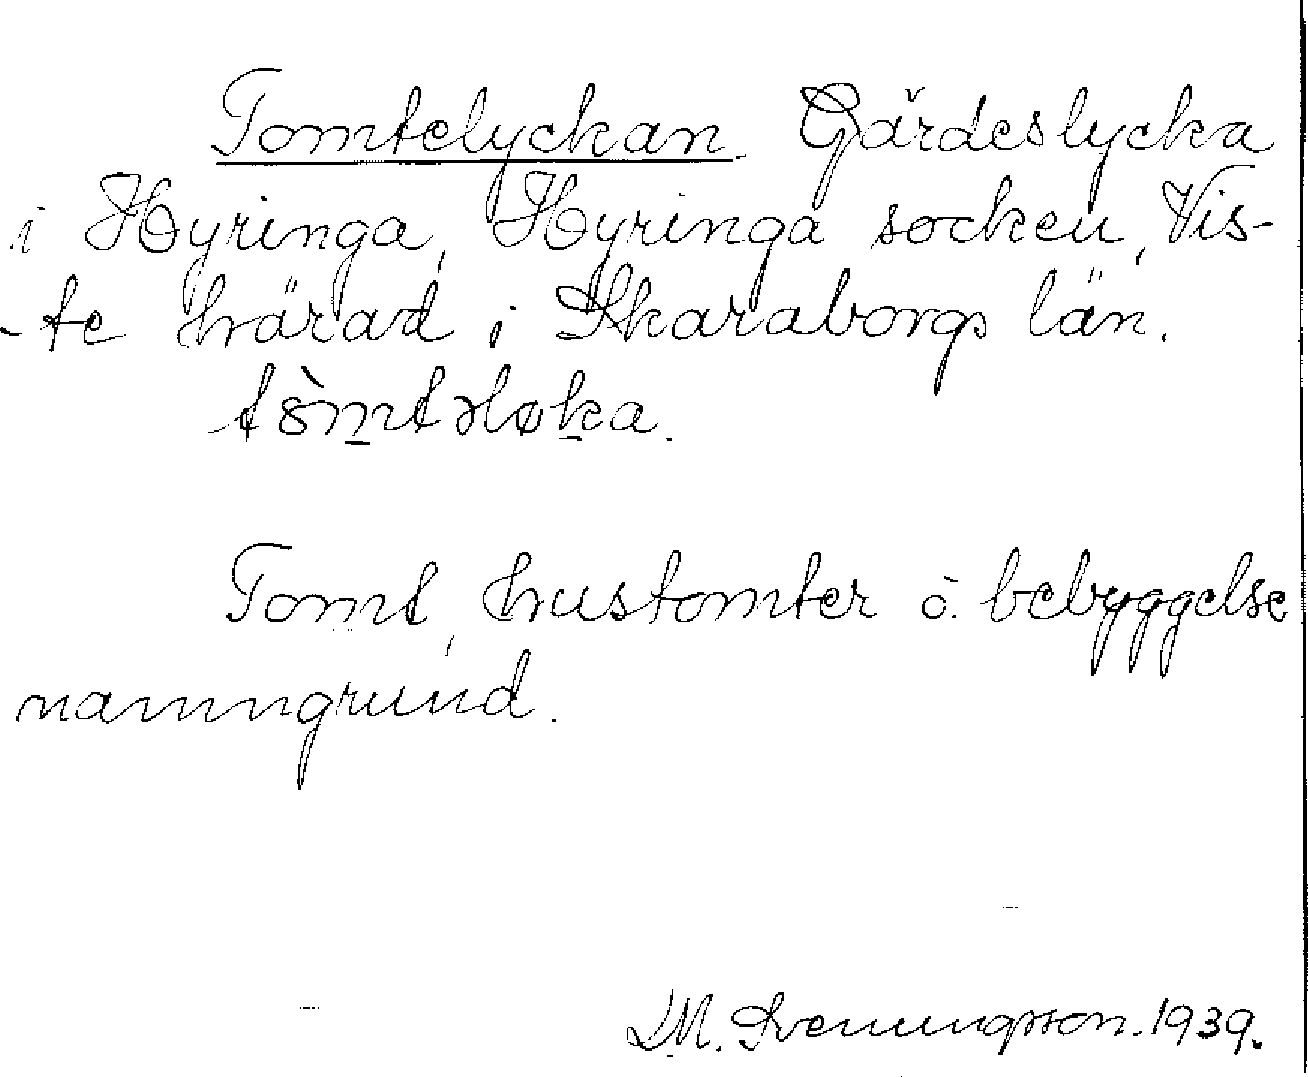 Tomtelyckan. Gärdeslycka
i Hyringa, Hyringa socken, Vis-
-te härad i Skaraborgs län.
Tomt, hustomter o. bebyggelse
namngrund.
M. Svenungsson. 1939.